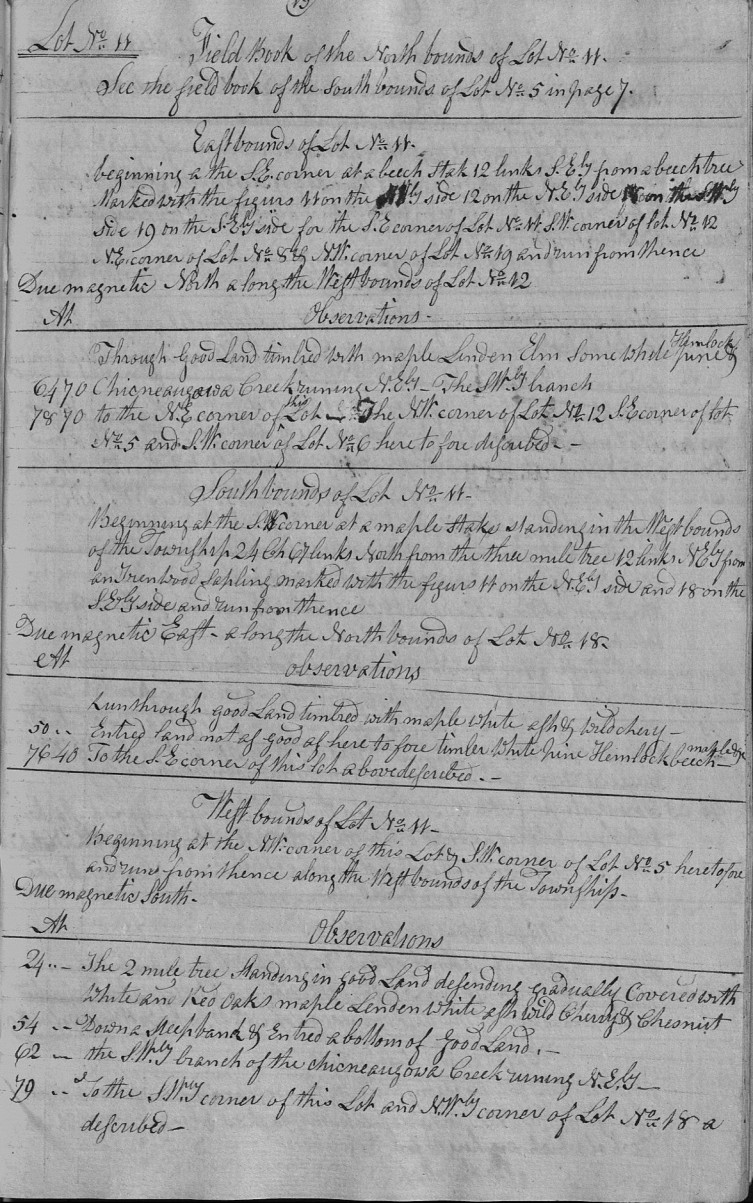 13
Lot No 11
Field Book of the North bounds of Lot No 11.
See the field book of the South bounds of Lot No 5 in page 7.
East bounds of Lot No 11.
beginning a the S.E. corner at a beech Stak 12 links S.Ely from a beech tree
Marked with the figurs 11 on the Wly side 12 on the N.Ely side on the S.Wly
side 19 on the S.Ely side for the S.E corner of Lot No 11 S.W. corner of lot No 12
N.E. corner of Lot No 18 & N.W. corner of Lot No 19 and run from thence
Due magnetic North along the West bounds of Lot No 12
At Observations.
Through Good Land timbred with maple Linden Elm Some White pine & Hemlock
6470 Chicneaugawa Creek runing N.Ely - The S.Wly branch
7870 to the N.E corner of this Lot The N.W. corner of Lot No 12 S.E corner of lot
No 5 and S.W. corner of Lot No 6 here to fore discribed. -
South bounds of Lot No 11.
Beginning at the S.W corner at a maple Stake standing in the West bounds
of the Township 24 Ch 67 links North from the three mile tree 12 links N.Ely from
an Irenwood Sapling marked with the figurs 11 on the N.Ely side and 18 on the
S.Ely side and run from thence
Due magnetic East - along the North bounds of Lot No 18.
At observations
Run through good Land timbred with maple white ash & wild chery -
50 .. Entred land not as good as here to fore timber White pine Hemlock beech maple &c
7640 To the S.E corner of this lot above described. -
West bounds of Lot No 11 -
Beginning at the N.W. corner of this Lot & S.W. corner of Lot No 5 heretofore
and run from thence along the West bounds of the Township -
Due magnetic South -
At Observations
24 .. - The 2 mile tree Standing in good Land desending gradually Covered with
White and Red Oaks maple Lenden White ash Wild Cherry & Chesnut
54 .. - Down a steep bank & Entred a bottom of Good Land. -
62 - the S.Wly branch of the chicneaugowa Creek runing N.Ely -
79 .. - To the S.Wly corner of this Lot and N.Wly corner of Lot No 18 a
described -